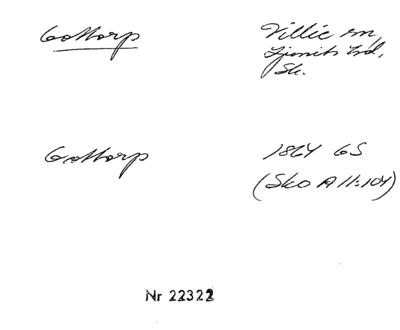 Gottorp
Villie sn,
Ljunits hd,
Sk.
Gottorp
1864 GS
(Sko A II:104)
Nr 22322